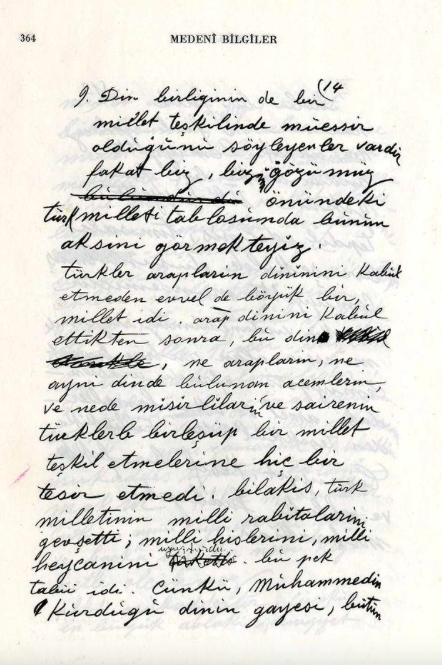 364
MEDENÎ BİLGİLER
(14
9. Din birliginin de bir
millet teşkilinde müessir
olduğunu söyleyenler vardır
fakat biz, bizim gözümüz
önündeki
türk milleti tablosunda bunun
aksini görmekteyiz.
türkler arapların dinini Kabul
etmeden evvel de böyük bir
millet idi. arap dinini Kabul
ettikten sonra, bu din
, ne arapların, ne
ayni dinde bulunan acemlerin,
ve nede mısırlıların ve sairenin
türklerle birleşüp bir millet
teşkil etmelerine hiç bir
tesir etmedi. bilakis, türk
milletinin milli rabıtalarını
gevşetti; milli hislerini, milli
uyuşturdu
heycanini . bu pek
tabii idi. Çünkü, Muhammedin
Kurduğu dinin gayesi, bütün